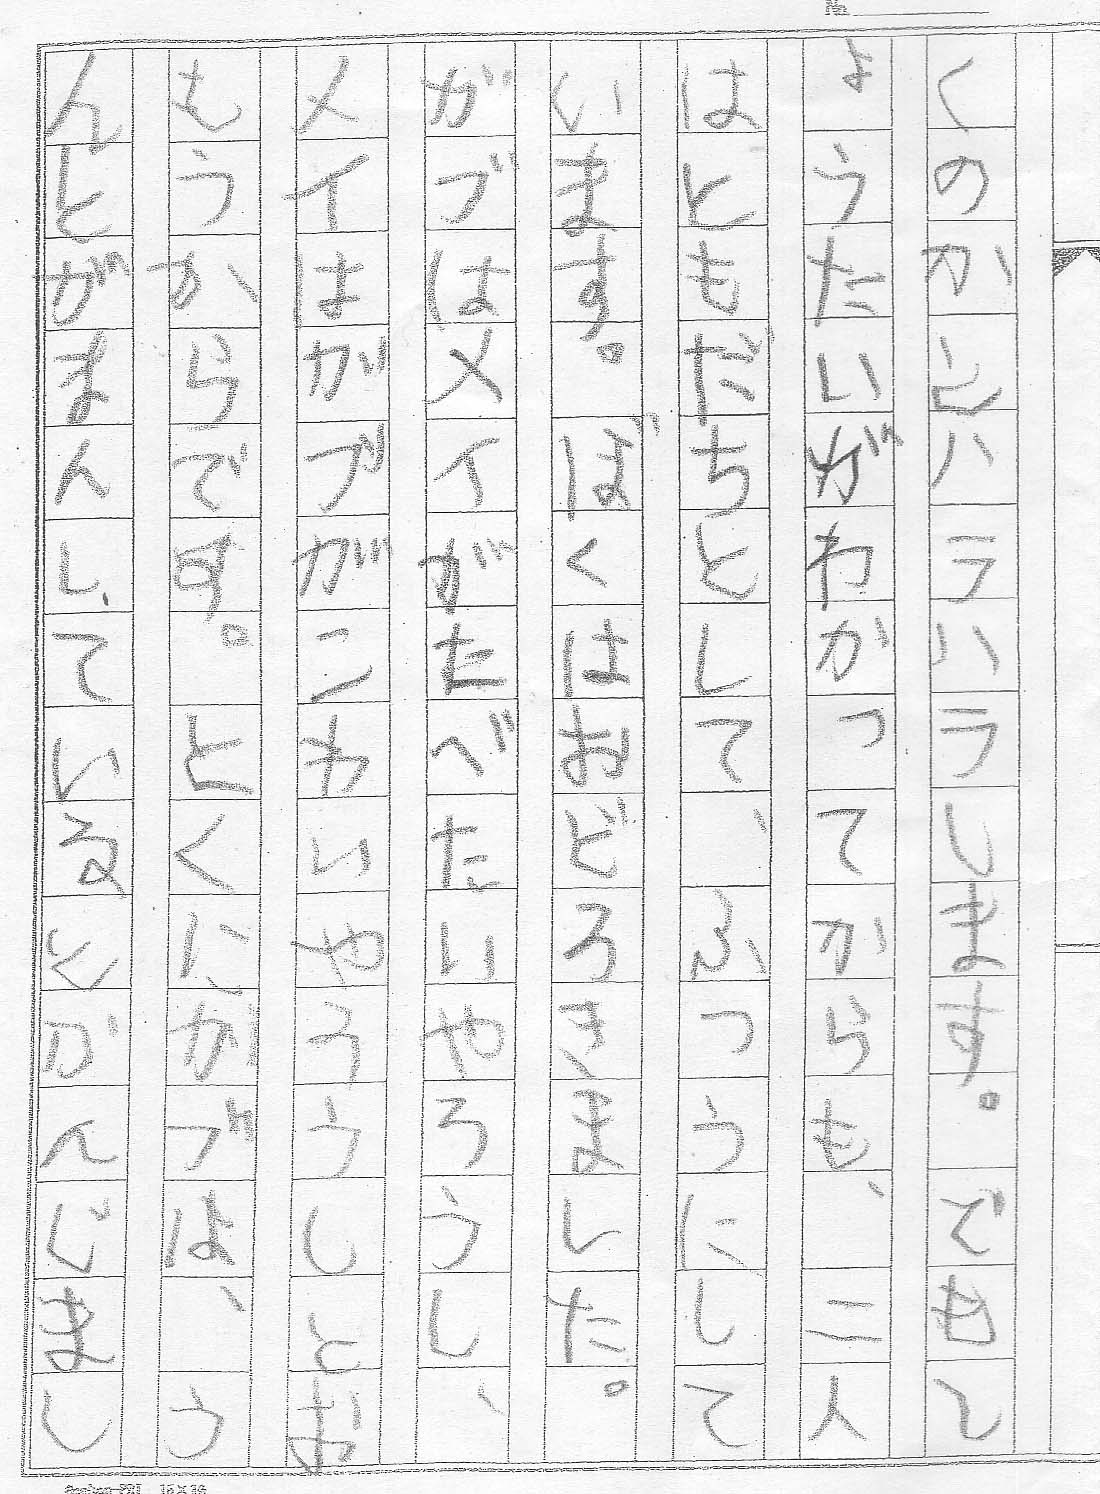 No.
くのかとハラハラします。でもし
ょうたいがわかってからも、二人
はともだちとして、ふつうにして
います。ぼくはおどろきました。
がブはメイがたべたいやろうし、
メイはがブがこわいやろうしとお
もうからです。とくにがブは、う
んとがまんしているとかんじまし